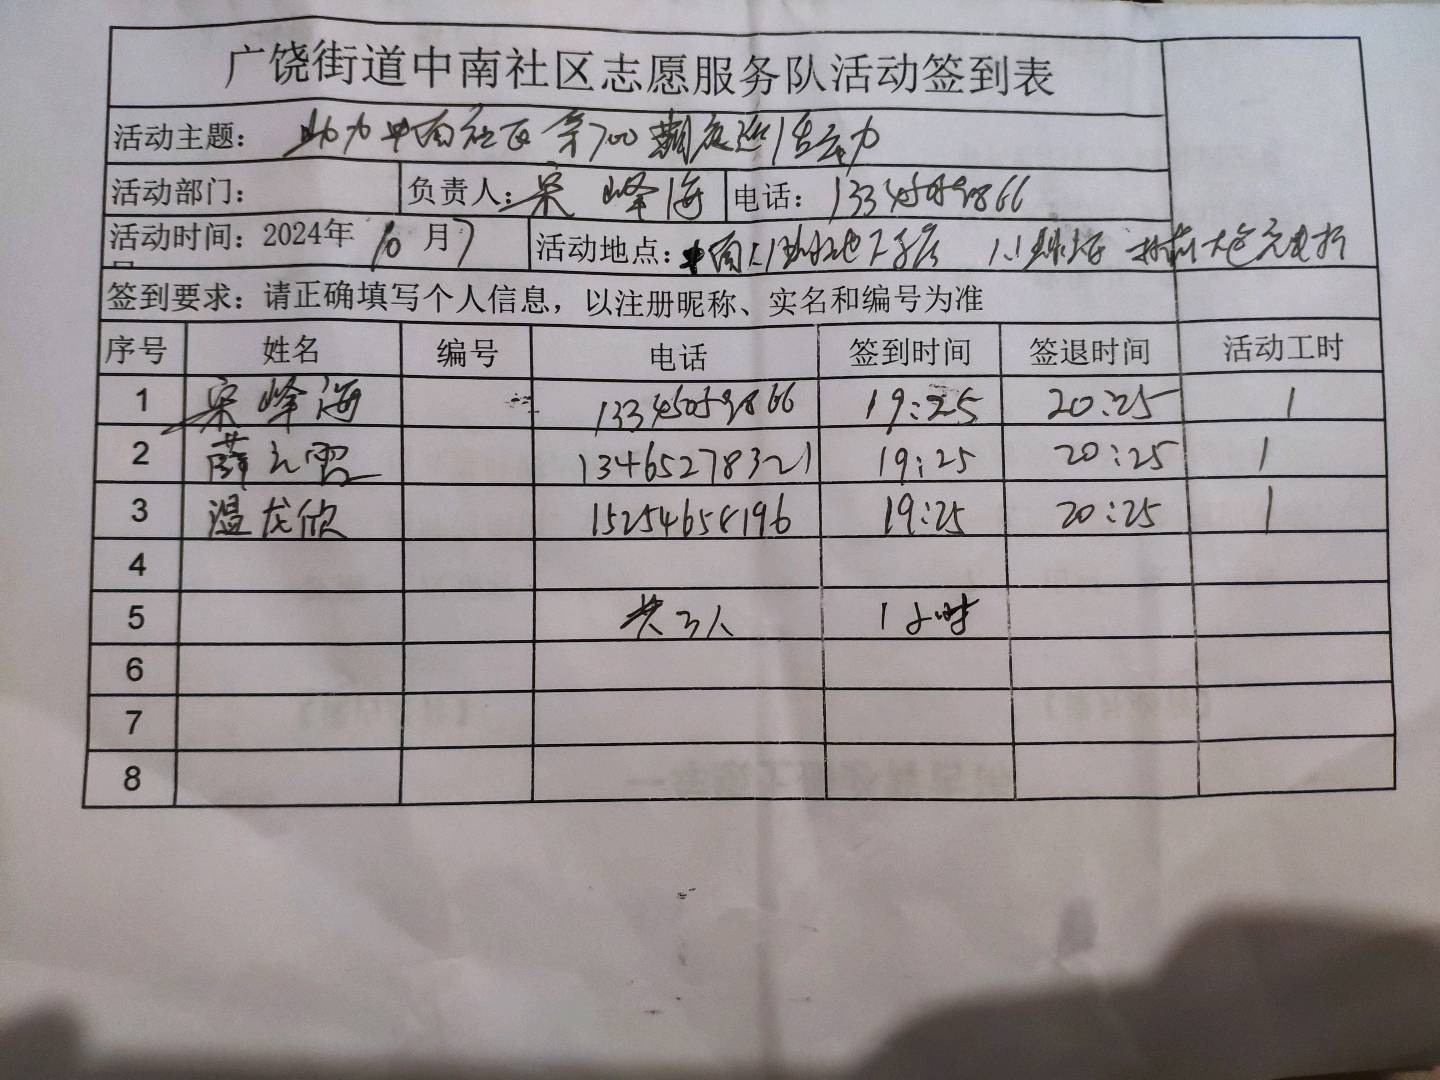 广饶街道中南社区志愿服务队活动签到表
活动主题： 助力中南社区第700期夜巡活动
活动部门： 负责人：宋峰海 电话：13345059866
活动时间：2024年10月7 活动地点：中南
签到要求：请正确填写个人信息，以注册昵称、实名和编号为准
序号 姓名 编号 电话 签到时间 签退时间 活动工时
1 宋峰海 13345059866 19:25 20:25 1
2 薛元霞 13465278321 19:25 20:25 1
3 温龙欣 15254658196 19:25 20:25 1
4
5 共3人 1小时
6
7
8